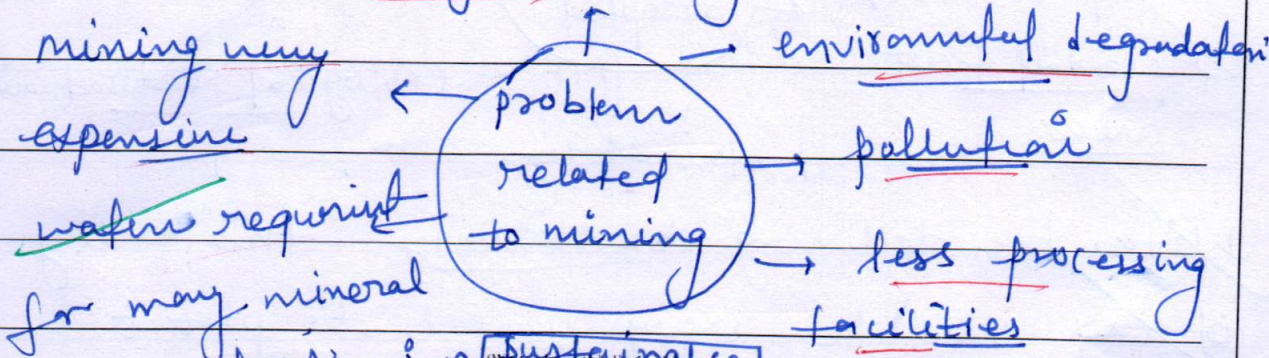 mining very
expensive
water requirint
for many mineral
problem
related
to mining
environmental degradation
pollution
less processing
facilities